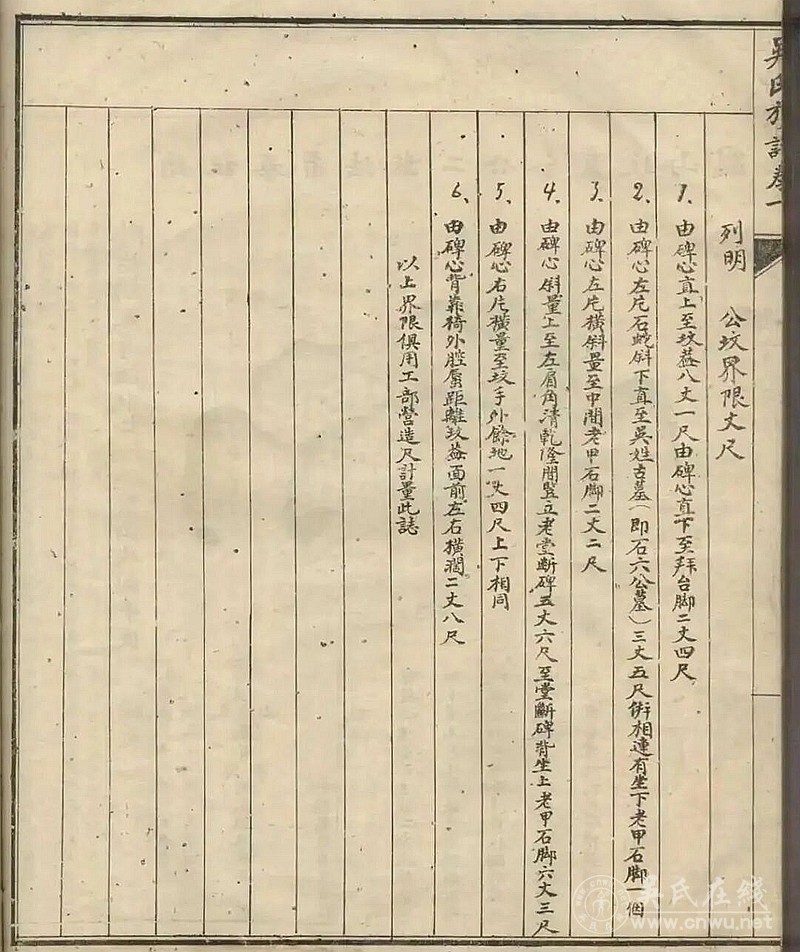 吳氏族譜卷一
列明　公坟界限丈尺
1、由碑心直上至坟蓋八丈一尺由碑心直下至拜台脚二丈四尺
2、由碑心左片石蛇斜下直至吳姓古墓（即石六公墓）三丈五尺併相連有坐下老甲石脚一個
3、由碑心左片橫斜量至中間老甲石脚二丈二尺
4、由碑心斜量上至左肩角清乾隆間豎立老堂斷碑五丈六尺至堂斷碑背坐上老甲石脚六丈三尺
5、由碑心右片橫量至坟手外餘地一丈四尺上下相同
6、由碑心背靠椅外腔唇距離坟蓋面前左右橫濶二丈八尺
以上界限俱用工部營造尺計量此誌
吳氏在线
www.cnwu.net